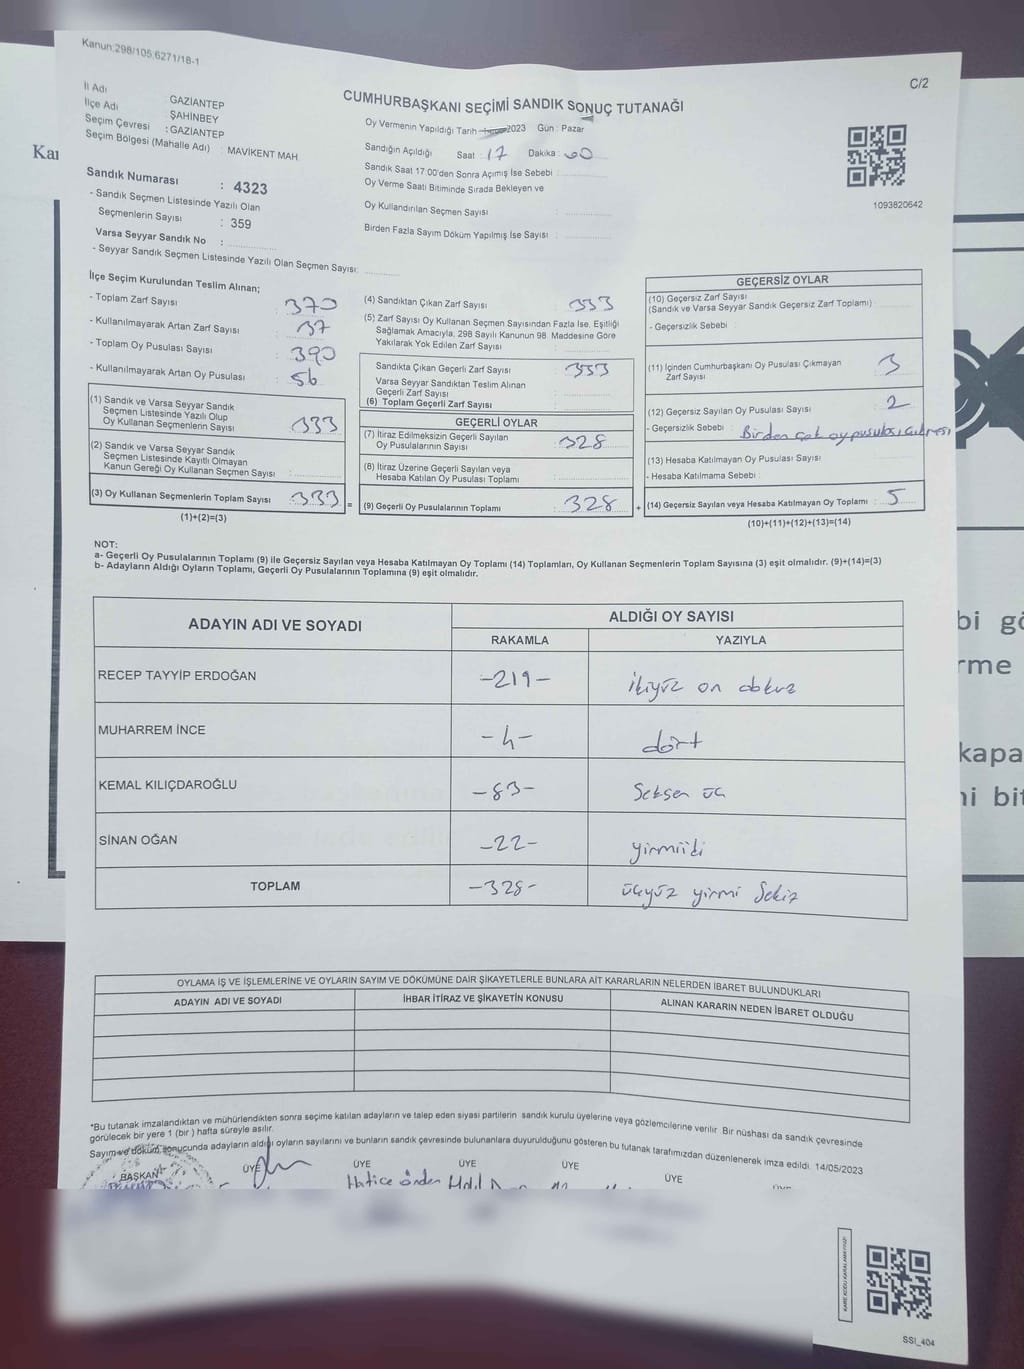 Kanun:298/105,6271/18-1
C/2
İl Adı GAZİANTEP
İlçe Adı ŞAHİNBEY
Seçim Çevresi : GAZİANTEP
Seçim Bölgesi (Mahalle Adı) : MAVİKENT MAH
Sandık Numarası : 4323
- Sandık Seçmen Listesinde Yazılı Olan
Seçmenlerin Sayısı : 359
Varsa Seyyar Sandık No :
- Seyyar Sandık Seçmen Listesinde Yazılı Olan Seçmen Sayısı:
CUMHURBAŞKANI SEÇİMİ SANDIK SONUÇ TUTANAĞI
Oy Vermenin Yapıldığı Tarih 2023 Gün : Pazar
Sandığın Açıldığı Saat : 17 Dakika : 00
Sandık Saat 17:00'den Sonra Açımış İse Sebebi :
Oy Verme Saati Bitiminde Sırada Bekleyen ve
Oy Kullandırılan Seçmen Sayısı :
Birden Fazla Sayım Döküm Yapılmış İse Sayısı :
1093820642
İlçe Seçim Kurulundan Teslim Alınan;
- Toplam Zarf Sayısı : 370
- Kullanılmayarak Artan Zarf Sayısı : 37
- Toplam Oy Pusulası Sayısı : 390
- Kullanılmayarak Artan Oy Pusulası : 56
(1) Sandık ve Varsa Seyyar Sandık
Seçmen Listesinde Yazılı Olup
Oy Kullanan Seçmenlerin Sayısı : 333
(2) Sandık ve Varsa Seyyar Sandık
Seçmen Listesinde Kayıtlı Olmayan
Kanun Gereği Oy Kullanan Seçmen Sayısı :
(3) Oy Kullanan Seçmenlerin Toplam Sayısı : 333 =
(1)+(2)=(3)
(4) Sandıktan Çıkan Zarf Sayısı : 333
(5) Zarf Sayısı Oy Kullanan Seçmen Sayısından Fazla İse, Eşitliği
Sağlamak Amacıyla, 298 Sayılı Kanunun 98. Maddesine Göre
Yakılarak Yok Edilen Zarf Sayısı :
Sandıkta Çıkan Geçerli Zarf Sayısı : 333
Varsa Seyyar Sandıktan Teslim Alınan
Geçerli Zarf Sayısı :
(6) Toplam Geçerli Zarf Sayısı :
GEÇERLİ OYLAR
(7) İtiraz Edilmeksizin Geçerli Sayılan
Oy Pusulalarının Sayısı : 328
(8) İtiraz Üzerine Geçerli Sayılan veya
Hesaba Katılan Oy Pusulası Toplamı :
(9) Geçerli Oy Pusulalarının Toplamı : 328 +
GEÇERSİZ OYLAR
(10) Geçersiz Zarf Sayısı
(Sandık ve Varsa Seyyar Sandık Geçersiz Zarf Toplamı) :
- Geçersizlik Sebebi :
(11) İçinden Cumhurbaşkanı Oy Pusulası Çıkmayan
Zarf Sayısı : 3
(12) Geçersiz Sayılan Oy Pusulası Sayısı : 2
- Geçersizlik Sebebi : Birden çok oy pusulası çıkması
(13) Hesaba Katılmayan Oy Pusulası Sayısı :
- Hesaba Katılmama Sebebi :
(14) Geçersiz Sayılan veya Hesaba Katılmayan Oy Toplamı : 5
(10)+(11)+(12)+(13)=(14)
NOT:
a- Geçerli Oy Pusulalarının Toplamı (9) ile Geçersiz Sayılan veya Hesaba Katılmayan Oy Toplamı (14) Toplamları, Oy Kullanan Seçmenlerin Toplam Sayısına (3) eşit olmalıdır. (9)+(14)=(3)
b- Adayların Aldığı Oyların Toplamı, Geçerli Oy Pusulalarının Toplamına (9) eşit olmalıdır.
ADAYIN ADI VE SOYADI ALDIĞI OY SAYISI
RAKAMLA YAZIYLA
RECEP TAYYİP ERDOĞAN -219- ikiyüz on dokuz
MUHARREM İNCE -4- dört
KEMAL KILIÇDAROĞLU -83- Seksen üç
SİNAN OĞAN -22- yirmiiki
TOPLAM -328- üçyüz yirmi sekiz
OYLAMA İŞ VE İŞLEMLERİNE VE OYLARIN SAYIM VE DÖKÜMÜNE DAİR ŞİKAYETLERLE BUNLARA AİT KARARLARIN NELERDEN İBARET BULUNDUKLARI
ADAYIN ADI VE SOYADI İHBAR İTİRAZ VE ŞİKAYETİN KONUSU ALINAN KARARIN NEDEN İBARET OLDUĞU
*Bu tutanak imzalandıktan ve mühürlendikten sonra seçime katılan adayların ve talep eden siyasi partilerin sandık kurulu üyelerine veya gözlemcilerine verilir. Bir nüshası da sandık çevresinde
görülecek bir yere 1 (bir) hafta süreyle asılır.
Sayım ve döküm sonucunda adayların aldığı oyların sayılarını ve bunların sandık çevresinde bulunanlara duyurulduğunu gösteren bu tutanak tarafımızdan düzenlenerek imza edildi. 14/05/2023
BAŞKAN ÜYE ÜYE ÜYE ÜYE ÜYE
Hatice Önder
SSİ_404
Kar
bi gö
rme
kapa
ni bit